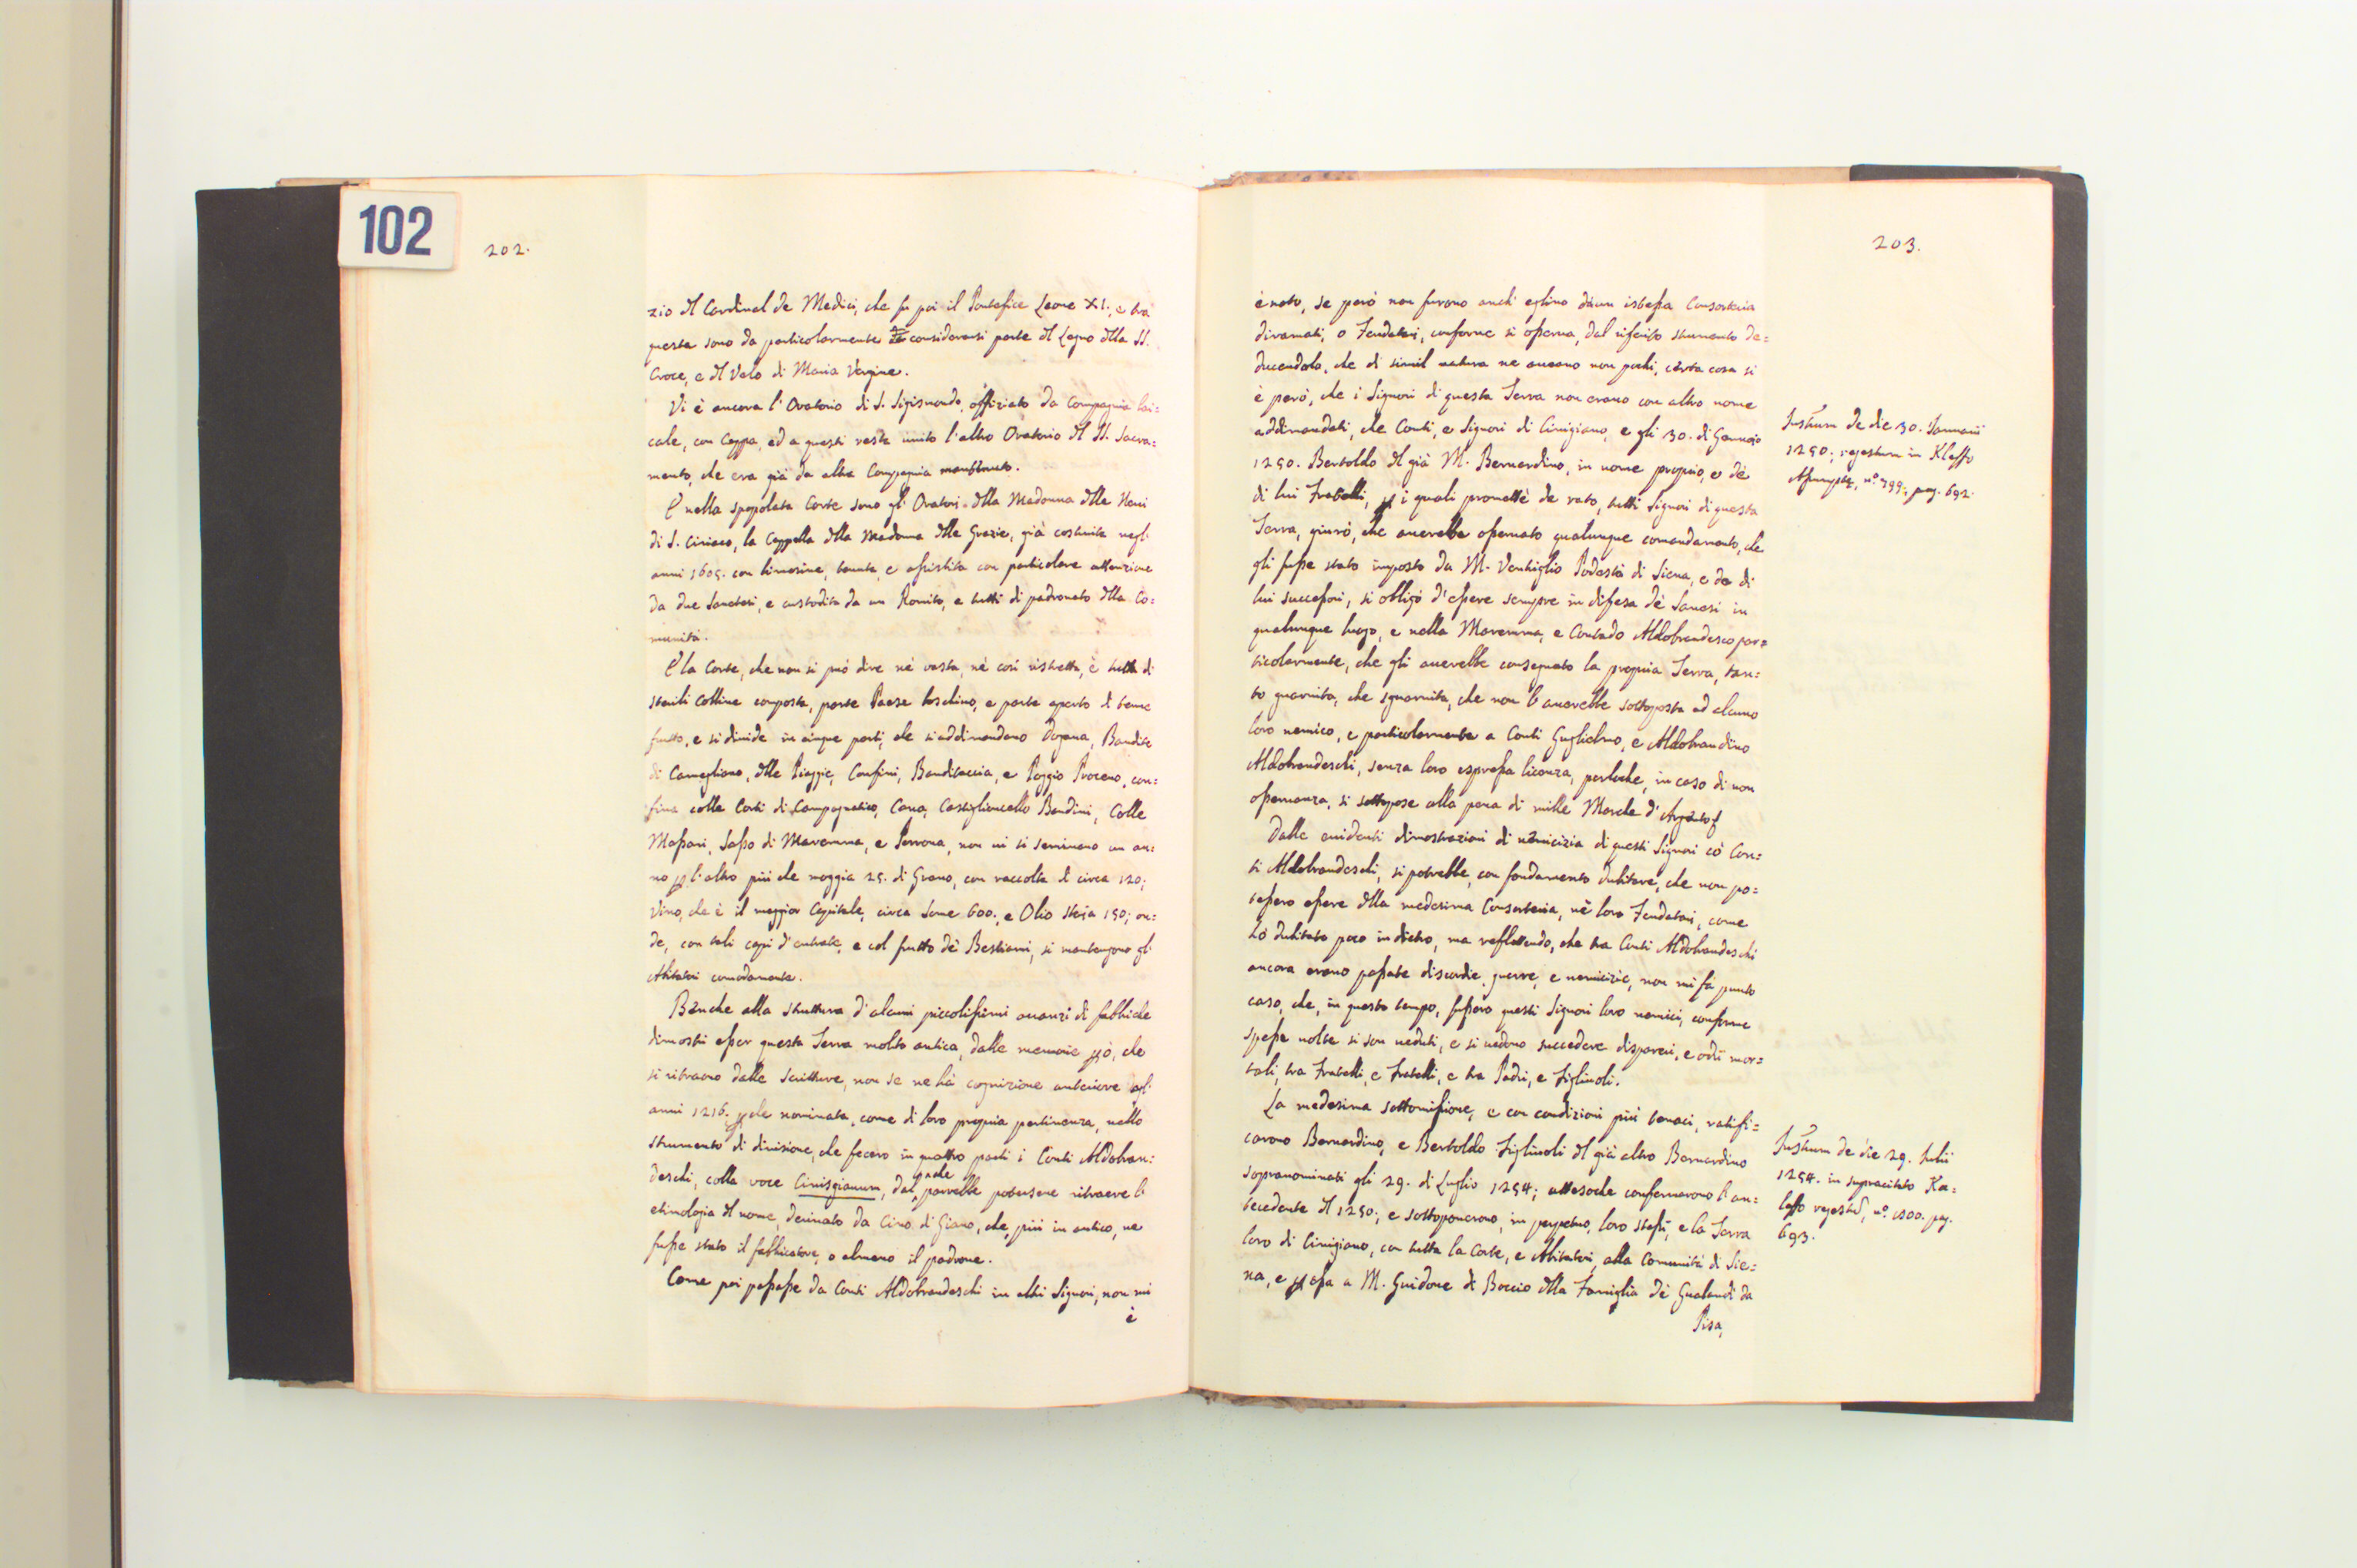 102
202.
zio del Cardinal de Medici, che fu poi il Pontefice Leone XI.; e tra
questa sono da particolarmente considerarsi parte del Legno della SS.
Croce, e del Velo di Maria Vergine.
Vi è ancora l'Oratorio di S. Sigismondo, offiziato da Compagnia lai=
cale, con Cappa, ed a questi resta unito l'altro Oratorio del SS. Sacra=
mento, che era già da altra Compagnia mantenuto.
E nella spopolata Corte sono gl'Oratori della Madonna delle Nevi
di S. Ciriaco, la Cappella della Madonna delle Grazie, già costruita negl'
anni 1605. con limosine, tenuta, e assistita con particolare attenzione
da due Santesi, e custodita da un Romito, e tutti di padronato della Co=
munità.
E la Corte, che non si può dire nè vasta, nè così ristretta, è tutta di
sterili Colline composta, parte Paese boschivo, e parte aperto di tenue
frutto, e si divide in cinque parti, che si addimandano Dogana, Bandite
di Camegliano, delle Piaggie, Confini, Banditaccia, e Poggio Proceno, con=
fina colle Corti di Campagnatico, Cana, Castiglioncello Bandini, Colle
Massari, Sasso di Maremma, e Porrona, non vi si seminano un an=
no per l'altro più che moggia 25. di Grano, con raccolta di circa 120;
Vino, che è il maggior Capitale, circa Some 600., e Olio Staja 150; on=
de, con tali capi d'entrate, e col frutto de' Bestiami, si mantengono gl'
Abitatori comodamente.
Benche alla struttura d'alcuni piccolissimi avanzi di fabbriche
dimostri esser questa Terra molto antica, dalle memorie però, che
si ritraono dalle Scritture, non se ne hà cognizione anteriore agl'
anni 1216. perche nominata, come di loro propria pertinenza, nello
Strumento di divisione, che fecero in quattro parti i Conti Aldobran=
deschi, colla voce Cinisgianum, dal quale parrebbe potersene ritraere l'
etimologia del nome, derivato da Cino di Giano, che, più in antico, ne
fusse stato il fabbricatore, o almeno il padrone.
Come poi passasse da Conti Aldobrandeschi in altri Signori, non mi
è
203.
è noto, se però non furono anch'eglino d'una istessa Consorteria
diramati, o Feudatari, conforme si osserva, dal riferito strumento de=
ducendolo, che di simil natura ne aveano non pochi, certa cosa si
è però, che i Signori di questa Terra non erano con altro nome
addimandati, che Conti, e Signori di Cinigiano, e gli 30. di Gennajo
1250. Bertoldo del già M. Bernardino, in nome proprio, e de'
di lui Fratelli, per i quali promettè de rato, tutti Signori di questa
Terra, giurò, che averebbe osservato qualunque comandamento, che
gli fusse stato imposto da M. Ventriglio Podestà di Siena, e da di
lui successori, si obligò d'essere sempre in difesa de' Sanesi in
qualunque luogo, e nella Maremma, e Contado Aldobrandesco par=
ticolarmente, che gli averebbe consegnato la propria Terra, tan=
to guarnita, che sguarnita, che non l'averebbe sottoposta ad alcuno
loro nemico, e particolarmente a Conti Guglielmo, e Aldobrandino
Aldobrandeschi, senza loro espressa licenza, perloche, in caso di non
osservanza, si sottopose alla pena di mille Marche d'Argento
Dalle evidenti dimostrazioni di nemicizia di questi Signori cò Con=
ti Aldobrandeschi, si potrebbe, con fondamento dubitare, che non po=
tessero essere della medesima Consorteria, nè loro Feudatari, come
hò dubitato poco indietro, ma reflettendo, che tra Conti Aldobrandeschi
ancora erano passate discordie, guerre, e nemicizie, non mi fa punto
caso, che, in questo tempo, fussero questi Signori loro nemici, conforme
spesse volte si son veduti, e si vedono succedere dispareri, e odii mor=
tali, tra Fratelli, e Fratelli, e tra Padri, e Figliuoli.
La medesima sottomissione, e con condizioni più tenaci, ratifi=
carono Bernardino, e Bertoldo Figliuoli del già altro Bernardino
sopranominati gli 29. di Luglio 1254; attesoche confermarono l'an=
tecedente del 1250; e sottoposerono, in perpetuo, loro stessi, e la Terra
loro di Cinigiano, con tutta la Corte, e Abitatori, alla Comunità di Sie=
na, e per essa a M. Guidone di Boccio della Famiglia de' Gualandi da
Pisa,
Instrum de die 30. Januarii
1250; registrum in Kleffo
nº. 799., pag. 692.
Instrum de die 29. Julii
1254. in supracitato Ka=
leffo regestrũ, nº. 1800. pag.
693.